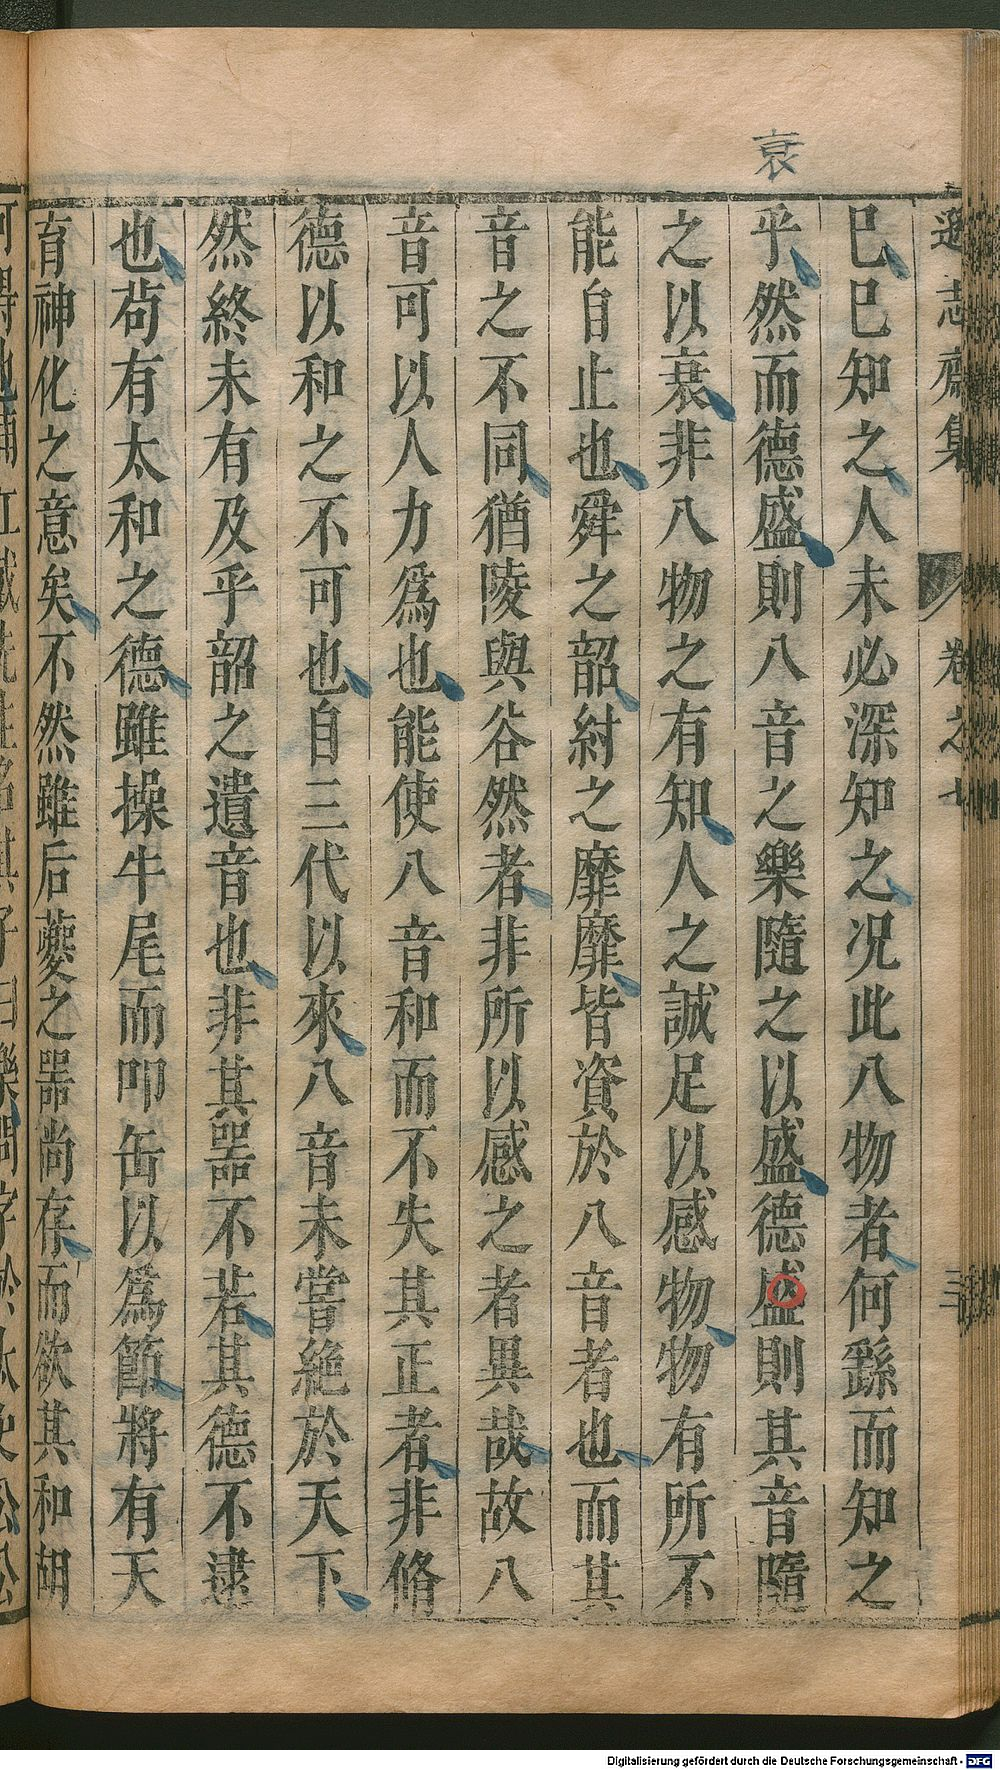 衰
遜志齋集 卷之七 三
已已知之人未必深知之况此八物者何繇而知之
乎然而德盛則八音之樂隨之以盛德盛則其音隨
之以衰非八物之有知人之誠足以感物物有所不
能自止也舜之韶紂之靡靡皆資於八音者也而其
音之不同猶陵與谷然者非所以感之者異哉故八
音可以人力爲也能使八音和而不失其正者非脩
德以和之不可也自三代以來八音未嘗絶於天下
然終未有及乎韶之遺音也非其器不若其德不逮
也茍有太和之德雖操牛尾而叩缶以爲節將有天
育神化之意矣不然雖后夔之器尚存而欲其和胡
Digitalisierung gefördert durch die Deutsche Forschungsgemeinschaft - DFG